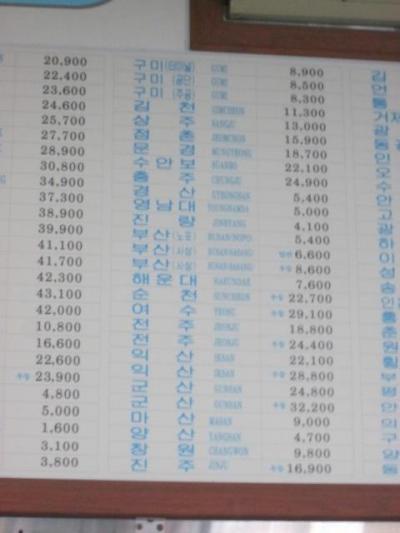 20,900
22,400
23,600
24,600
25,700
27,700
28,900
30,800
34,900
37,300
38,900
39,900
41,100
41,700
42,300
43,100
42,000
10,800
16,600
22,600
우등 23,900
4,800
5,000
1,600
3,100
3,800
구미(터미널) GUMI 8,900
구미(공단) GUMI 8,500
구미(주공) GUMI 8,300
김천 GIMCHEON 11,300
상주 SANGJU 13,000
점촌 JEOMCHON 15,900
문경 MUNGYEONG 18,700
수안보 SUANBO 22,100
충주 CHUNGJU 24,900
경산 GYEONGSAN 5,400
영남대 YOUNGNAMDA 5,000
진량 JINRYANG 4,100
부산(노포) BUSAN(NOPO) 5,400
부산(사상) BUSAN(SASANG) 6,600
부산(사상) BUSAN(SASANG) 우등 8,600
해운대 HAEUNDAE 7,600
순천 SUNCHEON 우등 22,700
여수 YEOSU 우등 29,100
전주 JEONJU 18,800
전주 JEONJU 우등 24,400
익산 IKSAN 22,100
익산 IKSAN 우등 28,800
군산 GUNSAN 24,800
군산 GUNSAN 우등 32,200
마산 MASAN 9,000
양산 YANGSAN 4,700
창원 CHANGWON 9,800
진주 JINJU 우등 16,900